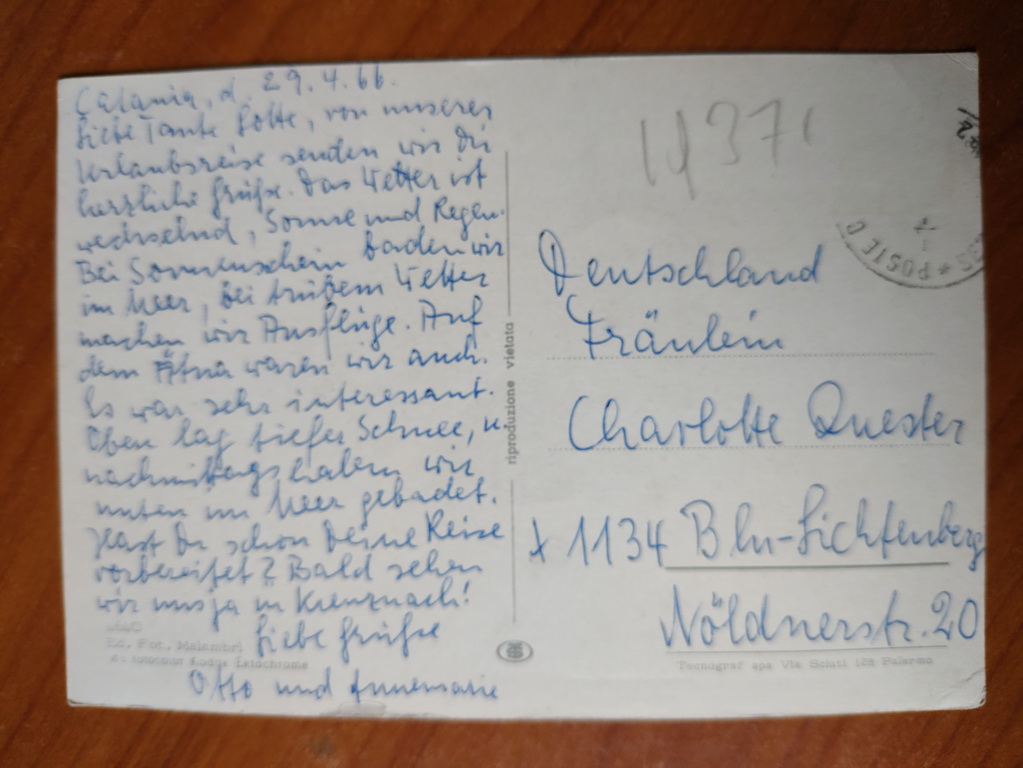 Catania, d. 29.4.66.
Liebe Tante Lotte, von unserer
Urlaubsreise senden wir dir
herzliche Grüße. Das Wetter ist
wechselnd, Sonne und Regen.
Bei Sonnenschein baden wir
im Meer, bei trübem Wetter
machen wir Ausflüge. Auf
dem Ätna waren wir auch.
Es war sehr interessant.
Oben lag tiefer Schnee, u.
nachmittags haben wir
unten im Meer gebadet.
Hast Du schon Deine Reise
vorbereitet? Bald sehen
wir uns ja in Kreuznach!
Liebe Grüße
Otto und Annemarie
Ed. Fot.
Kodak Ektachrome
riproduzione vietata
1437
POSTE
Deutschland
Fräulein
Charlotte Quester
x 1134 Bln-Lichtenberg
Nöldnerstr. 20
Tecnograf spa Via Palermo